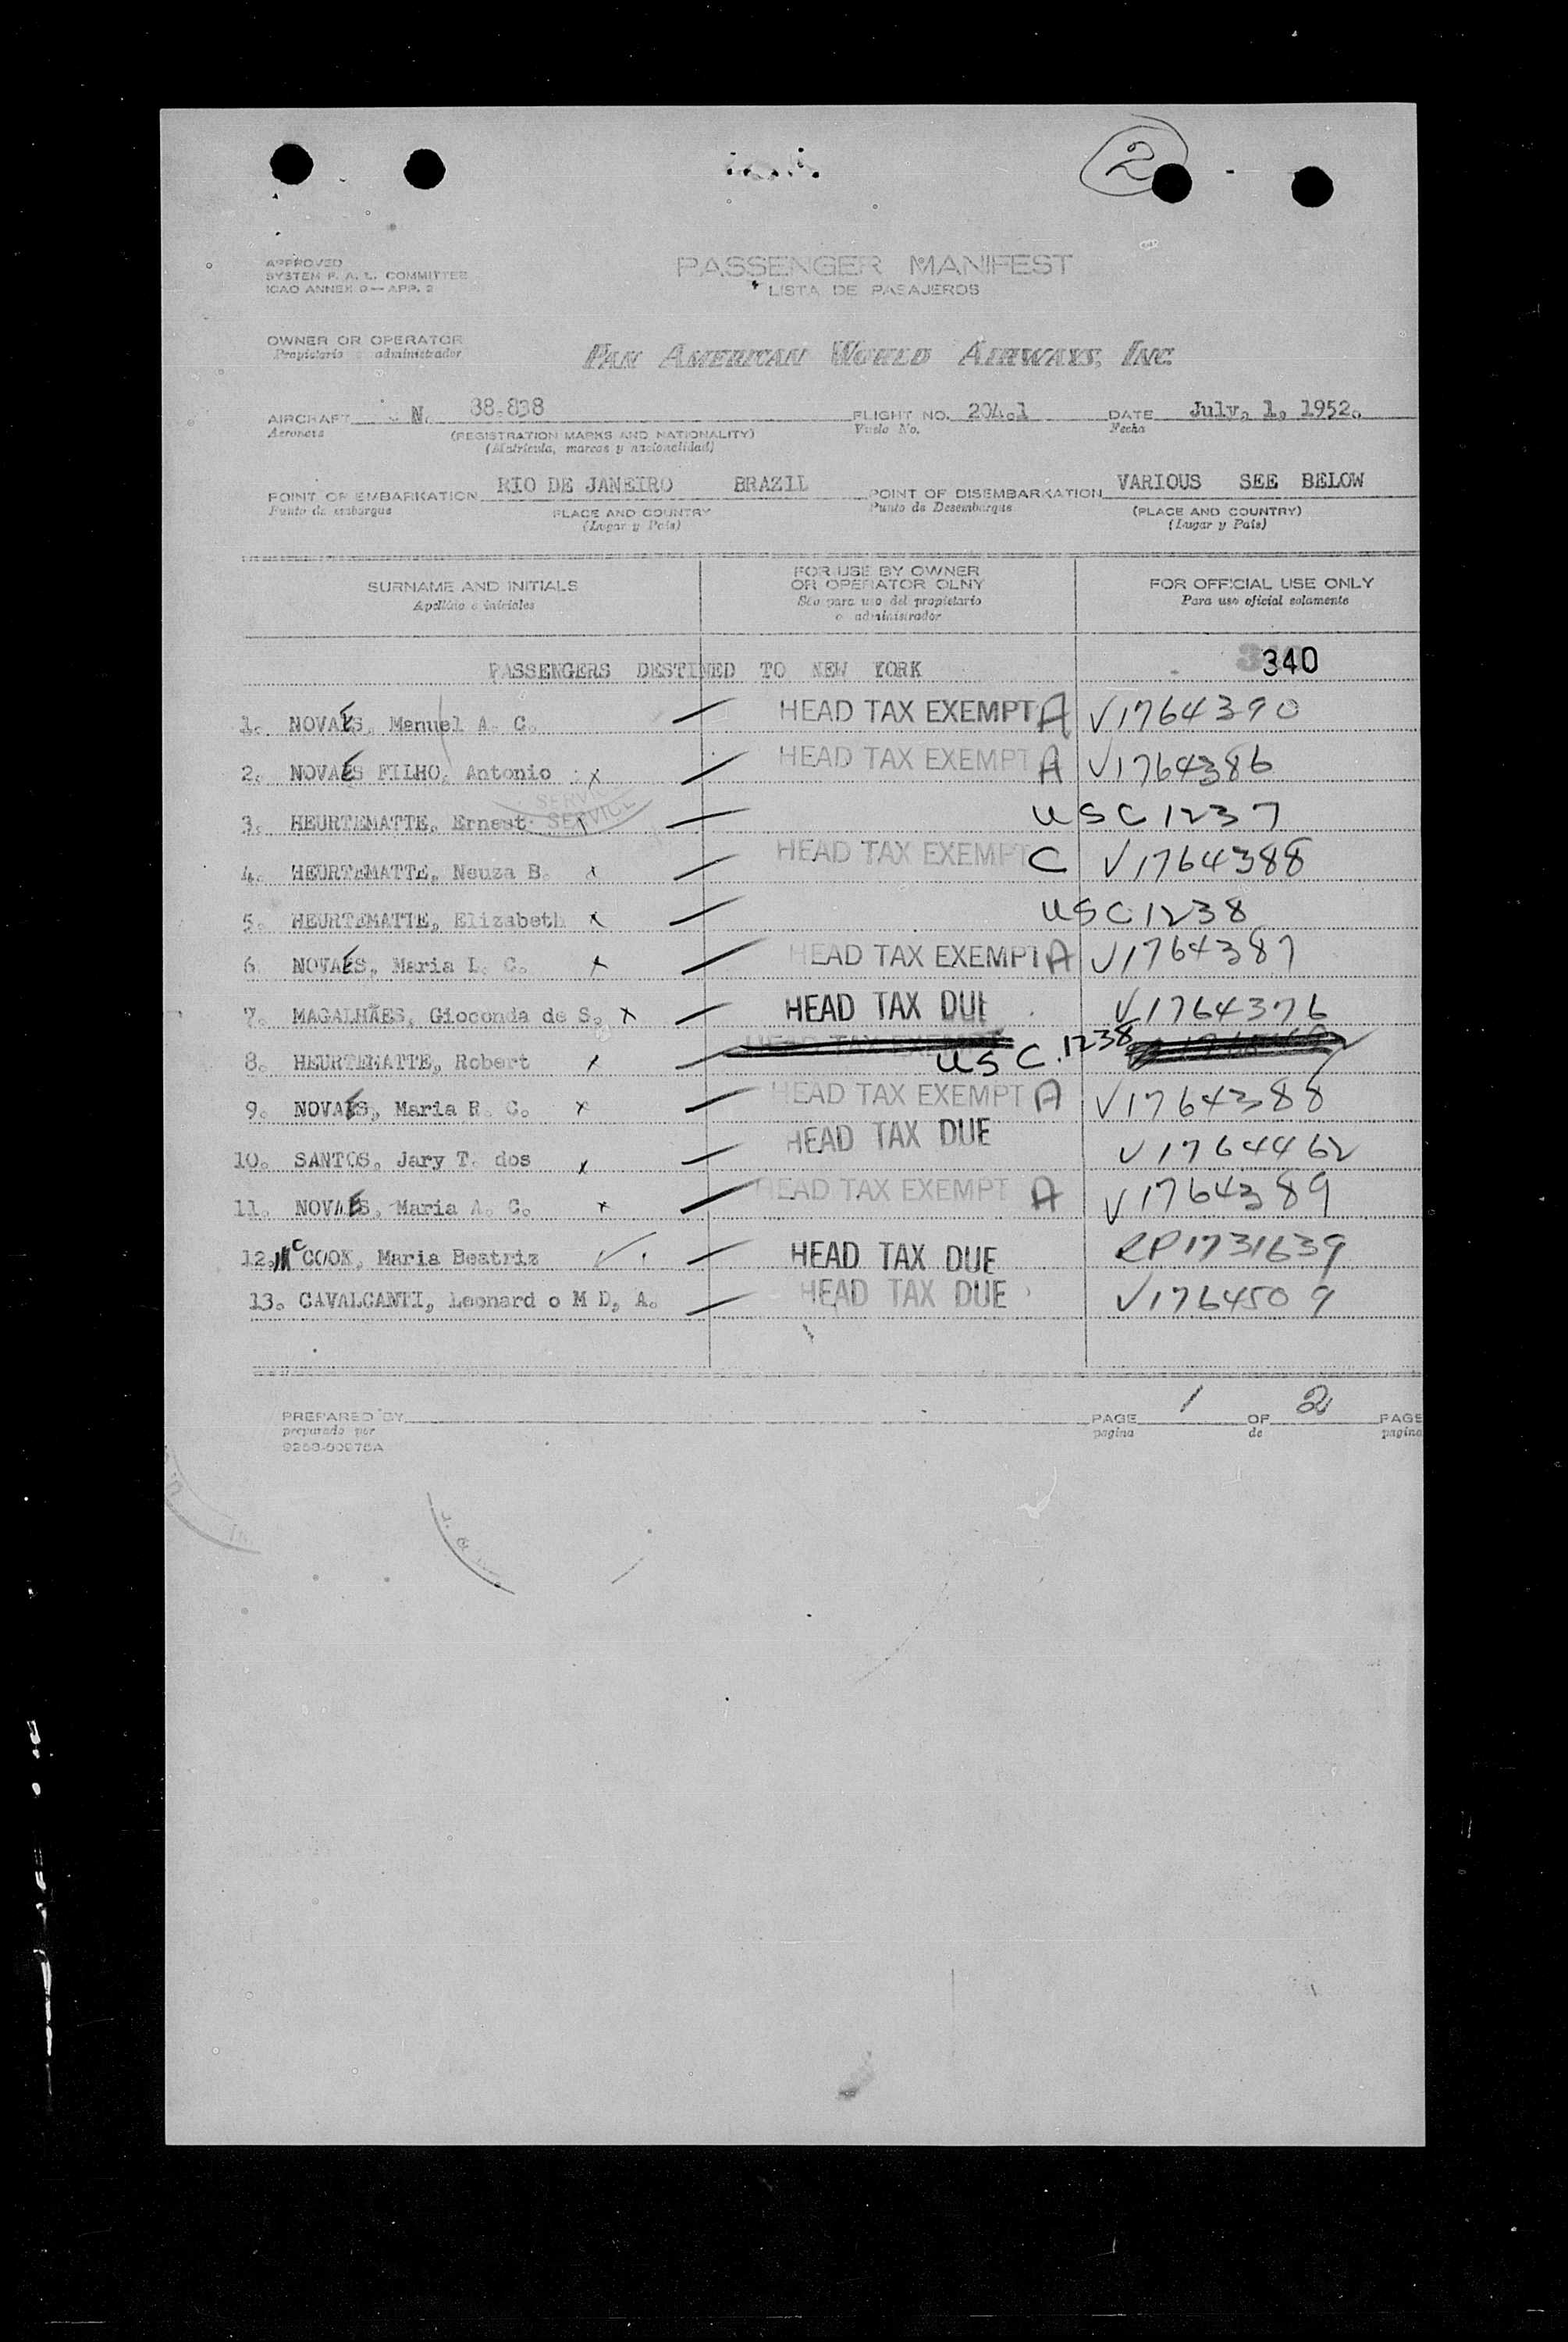 2
APPROVED
SYSTEM F. A. L. COMMITTEE
ICAO ANNEX 9 — APP. 2
PASSENGER MANIFEST
LISTA DE PASAJEROS
OWNER OR OPERATOR
Propietario administrador
PAN AMERICAN WORLD AIRWAYS, INC.
AIRCRAFT N. 88-838 FLIGHT NO. 204-1 DATE July, 1, 1952.
Aeronave (REGISTRATION MARKS AND NATIONALITY) Vuelo No. Fecha
(Matricula, marcas y nacionalidad)
POINT OF EMBARKATION RIO DE JANEIRO BRAZIL POINT OF DISEMBARKATION VARIOUS SEE BELOW
Punto de embarque PLACE AND COUNTRY Punto de Desembarque (PLACE AND COUNTRY)
(Lugar y Pais) (Lugar y Pais)
SURNAME AND INITIALS FOR USE BY OWNER OR OPERATOR OLNY FOR OFFICIAL USE ONLY
Apellido e iniciales Sólo para uso del propietario o administrador Para uso oficial solamente
PASSENGERS DESTINED TO NEW YORK 340
1. NOVAES, Manuel A. C. HEAD TAX EXEMPT A V1764390
2. NOVAES FILHO, Antonio x HEAD TAX EXEMPT A V1764386
SERVICE
3. HEURTEMATTE, Ernest USC 1237
4. HEURTEMATTE, Neuza B. x HEAD TAX EXEMPT C V1764388
5. HEURTEMATTE, Elizabeth x USC 1238
6 NOVAES, Maria L. C. x HEAD TAX EXEMPT A V1764387
7. MAGALHÃES, Gioconda de S. x HEAD TAX DUE V1764376
8. HEURTEMATTE, Robert x HEAD TAX EXEMPT USC. 1238
9. NOVAES, Maria R. C. x HEAD TAX EXEMPT A V1764388
10. SANTOS, Jary T. dos x HEAD TAX DUE V1764462
11. NOVAES, Maria A. C. x HEAD TAX EXEMPT A V1764389
12. McCOOK, Maria Beatriz HEAD TAX DUE RP1731639
13. CAVALCANTI, Leonard o M D, A. HEAD TAX DUE V1764509
PREPARED BY PAGE 1 OF 2 PAGE
preparado por pagina de pagina